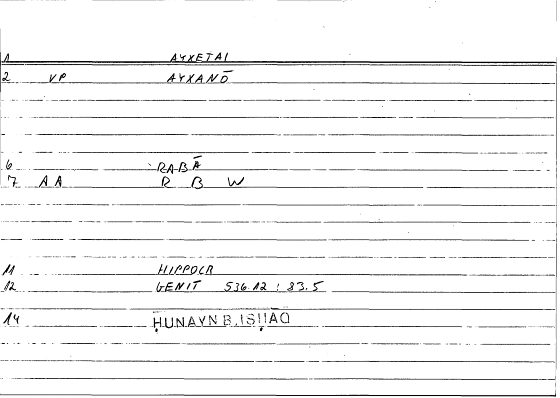 1 AYXETAI
2 VP AYXANŌ
6 RABĀ
7 AA R B W
11 HIPPOCR
12 GENIT 536.12 : 83.5
14 ḤUNAYN B. ISḤĀQ